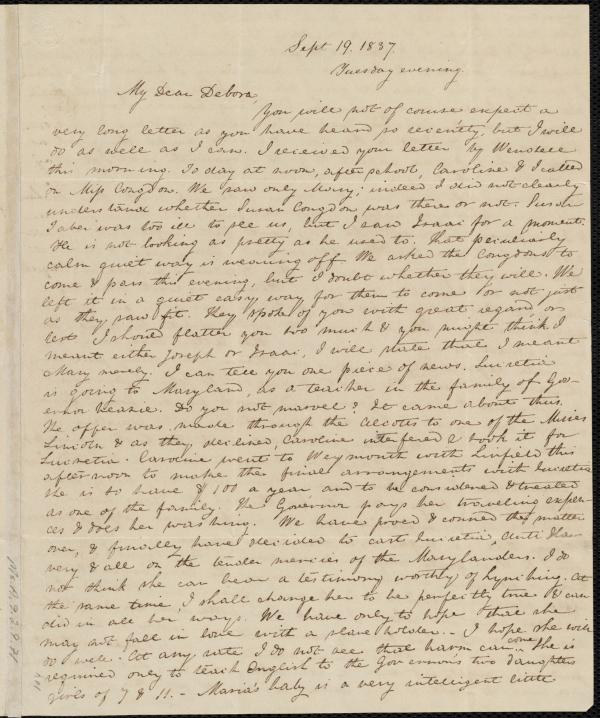 Sept 19. 1837.
Tuesday evening.
My Dear Debora,
You will not of course expect a
very long letter as you have heard so recently, but I will
do as well as I can. I received your letter by Wendell
this morning. To day at noon, after school, Caroline & I called
on Miss Congdon. We saw only Mary; indeed I did not clearly
understand whether Susan Congdon was there or not. Susan
Taber was too ill to see us, but I saw Isaac for a moment.
He is not looking as pretty as he used to. That peculiarly
calm quiet way is wearing off. We asked the Congdons to
come & pass this evening, but I doubt whether they will. We
left it in a quiet easy way for them to come or not just
as they saw fit. They spoke of you with great regard or
lest I should flatter you too much & you might think I
meant either Joseph or Isaac, I will state that I meant
Mary merely. I can tell you one piece of news. Lucretia
is going to Maryland, as a teacher in the family of Gov-
ernor Veazie. Do you not marvel? It came about thus.
The offer was made through the Alcotts to one of the Misses
Lincoln & as they declined, Caroline interfered & took it for
Lucretia. Caroline went to Weymouth with Linfield this
afternoon to make the final arrangements with Lucretia
She is to have $100 a year and to be considered & treated
as one of the family. The Governor pays her traveling expen-
ces & does her washing. We have pro'd & conned the matter
over, & finally have decided to cast Lucretia, Anti Sla-
very & all on the tender mercies of the Marylanders. I do
not think she can bear a testimony worthy of Lynching. At
the same time, I shall charge her to be perfectly true & can
did in all her ways. We have only to hope that she
may not fall in love with a slave holder. - I hope she will
do well. At any rate I do not see that harm can come. She is
required only to teach English to the Governors two daughters
girls of 7 & 11. - Maria's baby is a very intelligent little